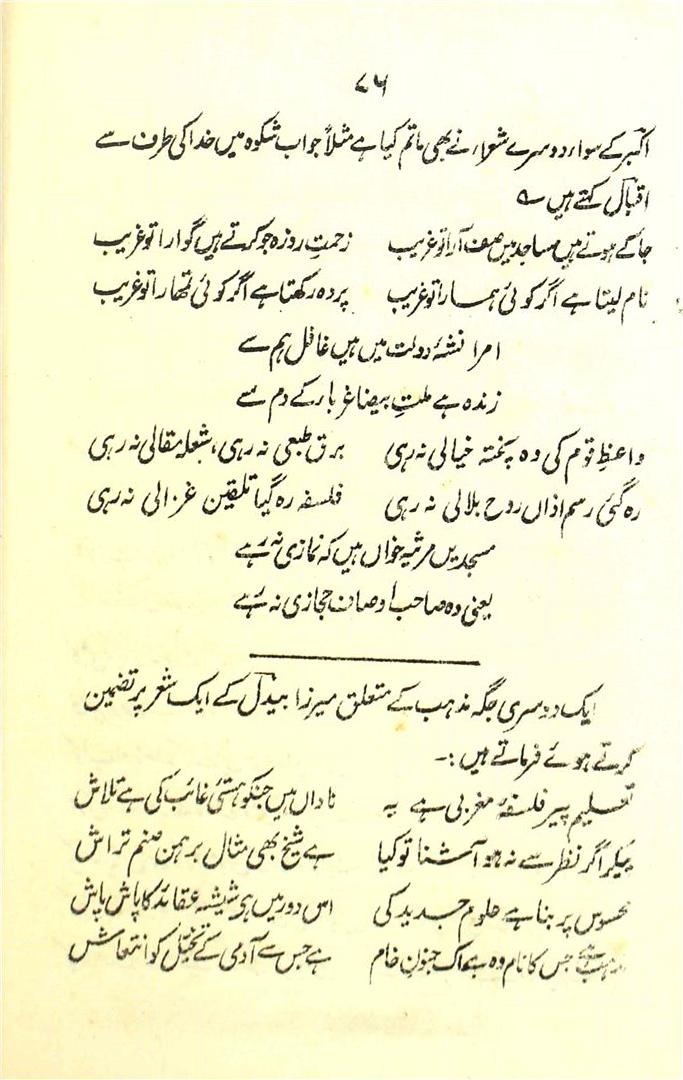 ۷۶
اکبر کے سوا، دوسرے شعراء نے بھی ماتم کیا ہے مثلاً جواب شکوہ میں خدا کی طرف سے
اقبال کہتے ہیں ؎
جا کے ہوتے ہیں مساجد میں صف آرا تو غریب زحمتِ روزہ جو کرتے ہیں گوارا تو غریب
نام لیتا ہے اگر کوئی ہمارا تو غریب پردہ رکھتا ہے اگر کوئی تمھارا تو غریب
امرا نشۂ دولت میں ہیں غافل ہم سے
زندہ ہے ملتِ بیضا غربا کے دم سے
واعظِ قوم کی وہ پختہ خیالی نہ رہی برق طبعی نہ رہی، شعلہ مقالی نہ رہی
رہ گئی رسم اذاں روح بلالی نہ رہی فلسفہ رہ گیا تلقین غزالی نہ رہی
مسجدیں مرثیہ خواں ہیں کہ نمازی نہ رہے
یعنی وہ صاحب اوصاف حجازی نہ رہے
ایک دوسری جگہ مذہب کے متعلق میرزا بیدل کے ایک شعر پر تضمین
کرتے ہوئے فرماتے ہیں :۔
تعلیم پیر فلسفۂ مغربی ہے یہ ناداں ہیں جنکو ہستئ غائب کی ہے تلاش
پیکر اگر نظر سے نہ ہو آشنا تو کیا ہے شیخ بھی مثال برہمن صنم تراش
محسوس پر بنا ہے علوم جدید کی اس دور میں ہے شیشہ عقائد کا پاش پاش
مذہب ہے جس کا نام وہ ہے اک جنونِ خام ہے جس سے آدمی کے تخیّل کو انتعاش